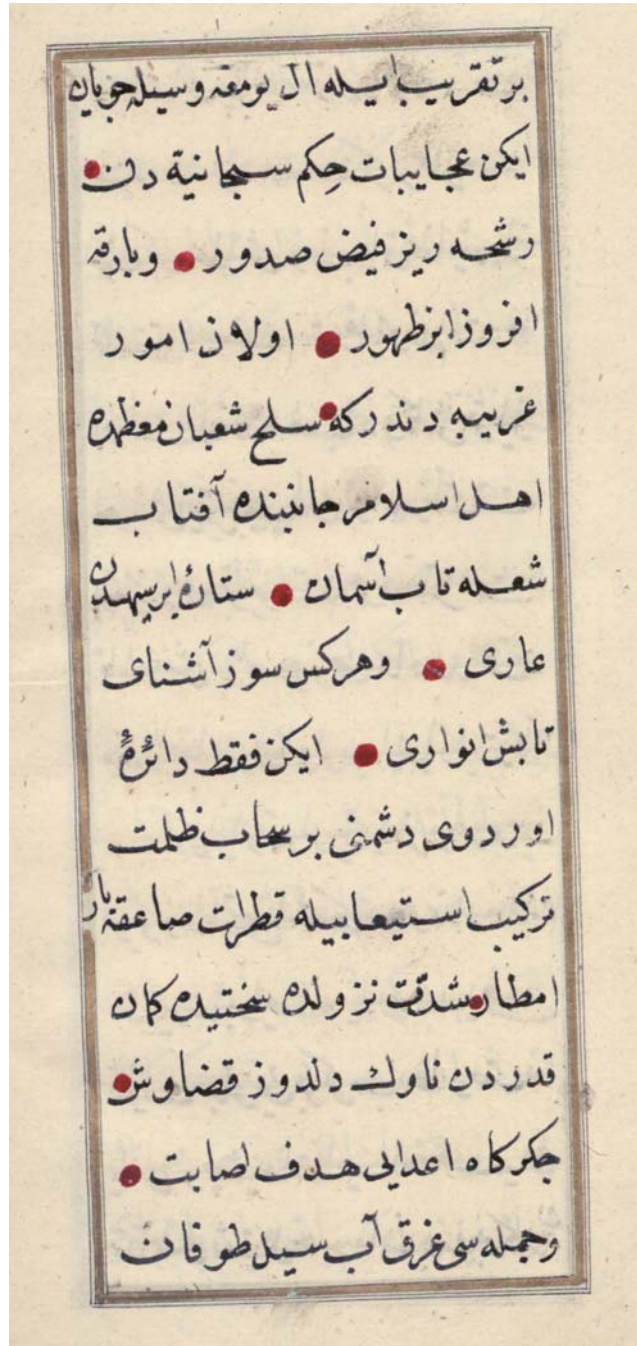 بر تقریب ایله ال یومغه وسیله جویان
ایکن عجایبات حِکم سبحانیة دن
رشحه ریز فیض صدور وبارقه
افروز ابر ظهور اولان امور
غریبه دندرکه سلخ شعبان معظمده
اهل اسلام جانبنده آفتاب
شعله تاب آسمان ستارهٔ ابر سیهدن
عاری وهرکس سوز آشنای
تابش انواری ایکن فقط دائرهٔ
اوردوی دشمنی بر سحاب ظلمت
ترکیب استیعابیله قطرات صاعقه بار
امطار شدّت نزولده سختیده کمان
قدردن ناوك دلدوز قضاوش
جکرکاه اعدایی هدف اصابت
وجمله سی غرق آب سیل طوفان